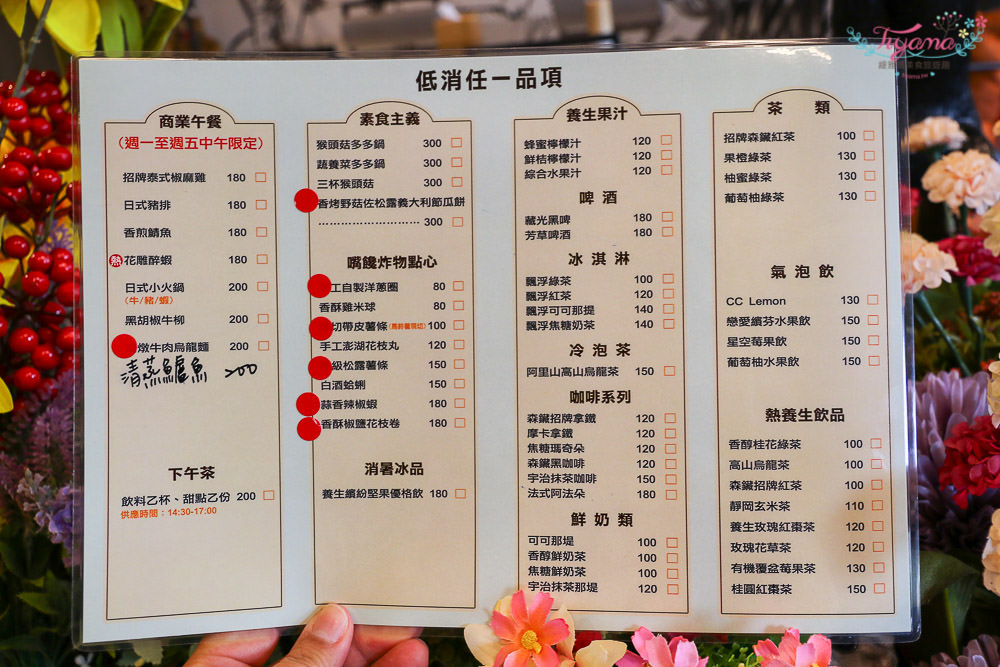 Tiyama
低消任一品項
商業午餐
（週一至週五中午限定）
招牌泰式椒麻雞 180
日式豬排 180
香煎鯖魚 180
熱 花雕醉蝦 180
日式小火鍋 200
(牛/豬/蝦)
黑胡椒牛柳 200
燉牛肉烏龍麵 200
清蒸鱸魚 200
下午茶
飲料乙杯、甜點乙份 200
供應時間：14:30-17:00
素食主義
猴頭菇多多鍋 300
蔬養菜多多鍋 300
三杯猴頭菇 300
香烤野菇佐松露義大利節瓜餅
........................ 300
嘴饞炸物點心
工自製洋蔥圈 80
香酥雞米球 80
切帶皮薯條(馬鈴薯現切) 100
手工澎湖花枝丸 120
級松露薯條 150
白酒蛤蜊 150
蒜香辣椒蝦 180
香酥椒鹽花枝卷 180
消暑冰品
養生繽紛堅果優格飲 180
養生果汁
蜂蜜檸檬汁 120
鮮桔檸檬汁 120
綜合水果汁 120
啤酒
藏光黑啤 180
芳草啤酒 180
冰淇淋
飄浮綠茶 100
飄浮紅茶 120
飄浮可可那提 140
飄浮焦糖奶茶 140
冷泡茶
阿里山高山烏龍茶 150
咖啡系列
森鑶招牌拿鐵 120
摩卡拿鐵 120
焦糖瑪奇朵 120
森鑶黑咖啡 120
宇治抹茶咖啡 150
法式阿法朵 180
鮮奶類
可可那堤 100
香醇鮮奶茶 100
焦糖鮮奶茶 100
宇治抹茶那堤 120
茶類
招牌森鑶紅茶 100
果橙綠茶 130
柚蜜綠茶 130
葡萄柚綠茶 130
氣泡飲
CC Lemon 130
戀愛繽芬水果飲 150
星空莓果飲 150
葡萄柚水果飲 150
熱養生飲品
香醇桂花綠茶 100
高山烏龍茶 100
森鑶招牌紅茶 100
靜岡玄米茶 110
養生玫瑰紅棗茶 120
玫瑰花草茶 120
有機覆盆莓果茶 130
桂圓紅棗茶 150